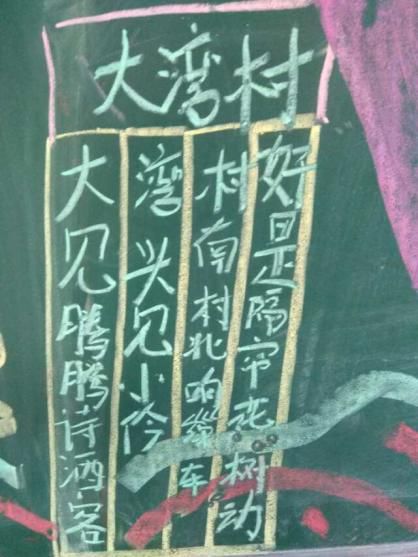 大湾村
大见腾腾诗酒客
湾头见小怜
村南村北响缫车
好是隔帘花树动